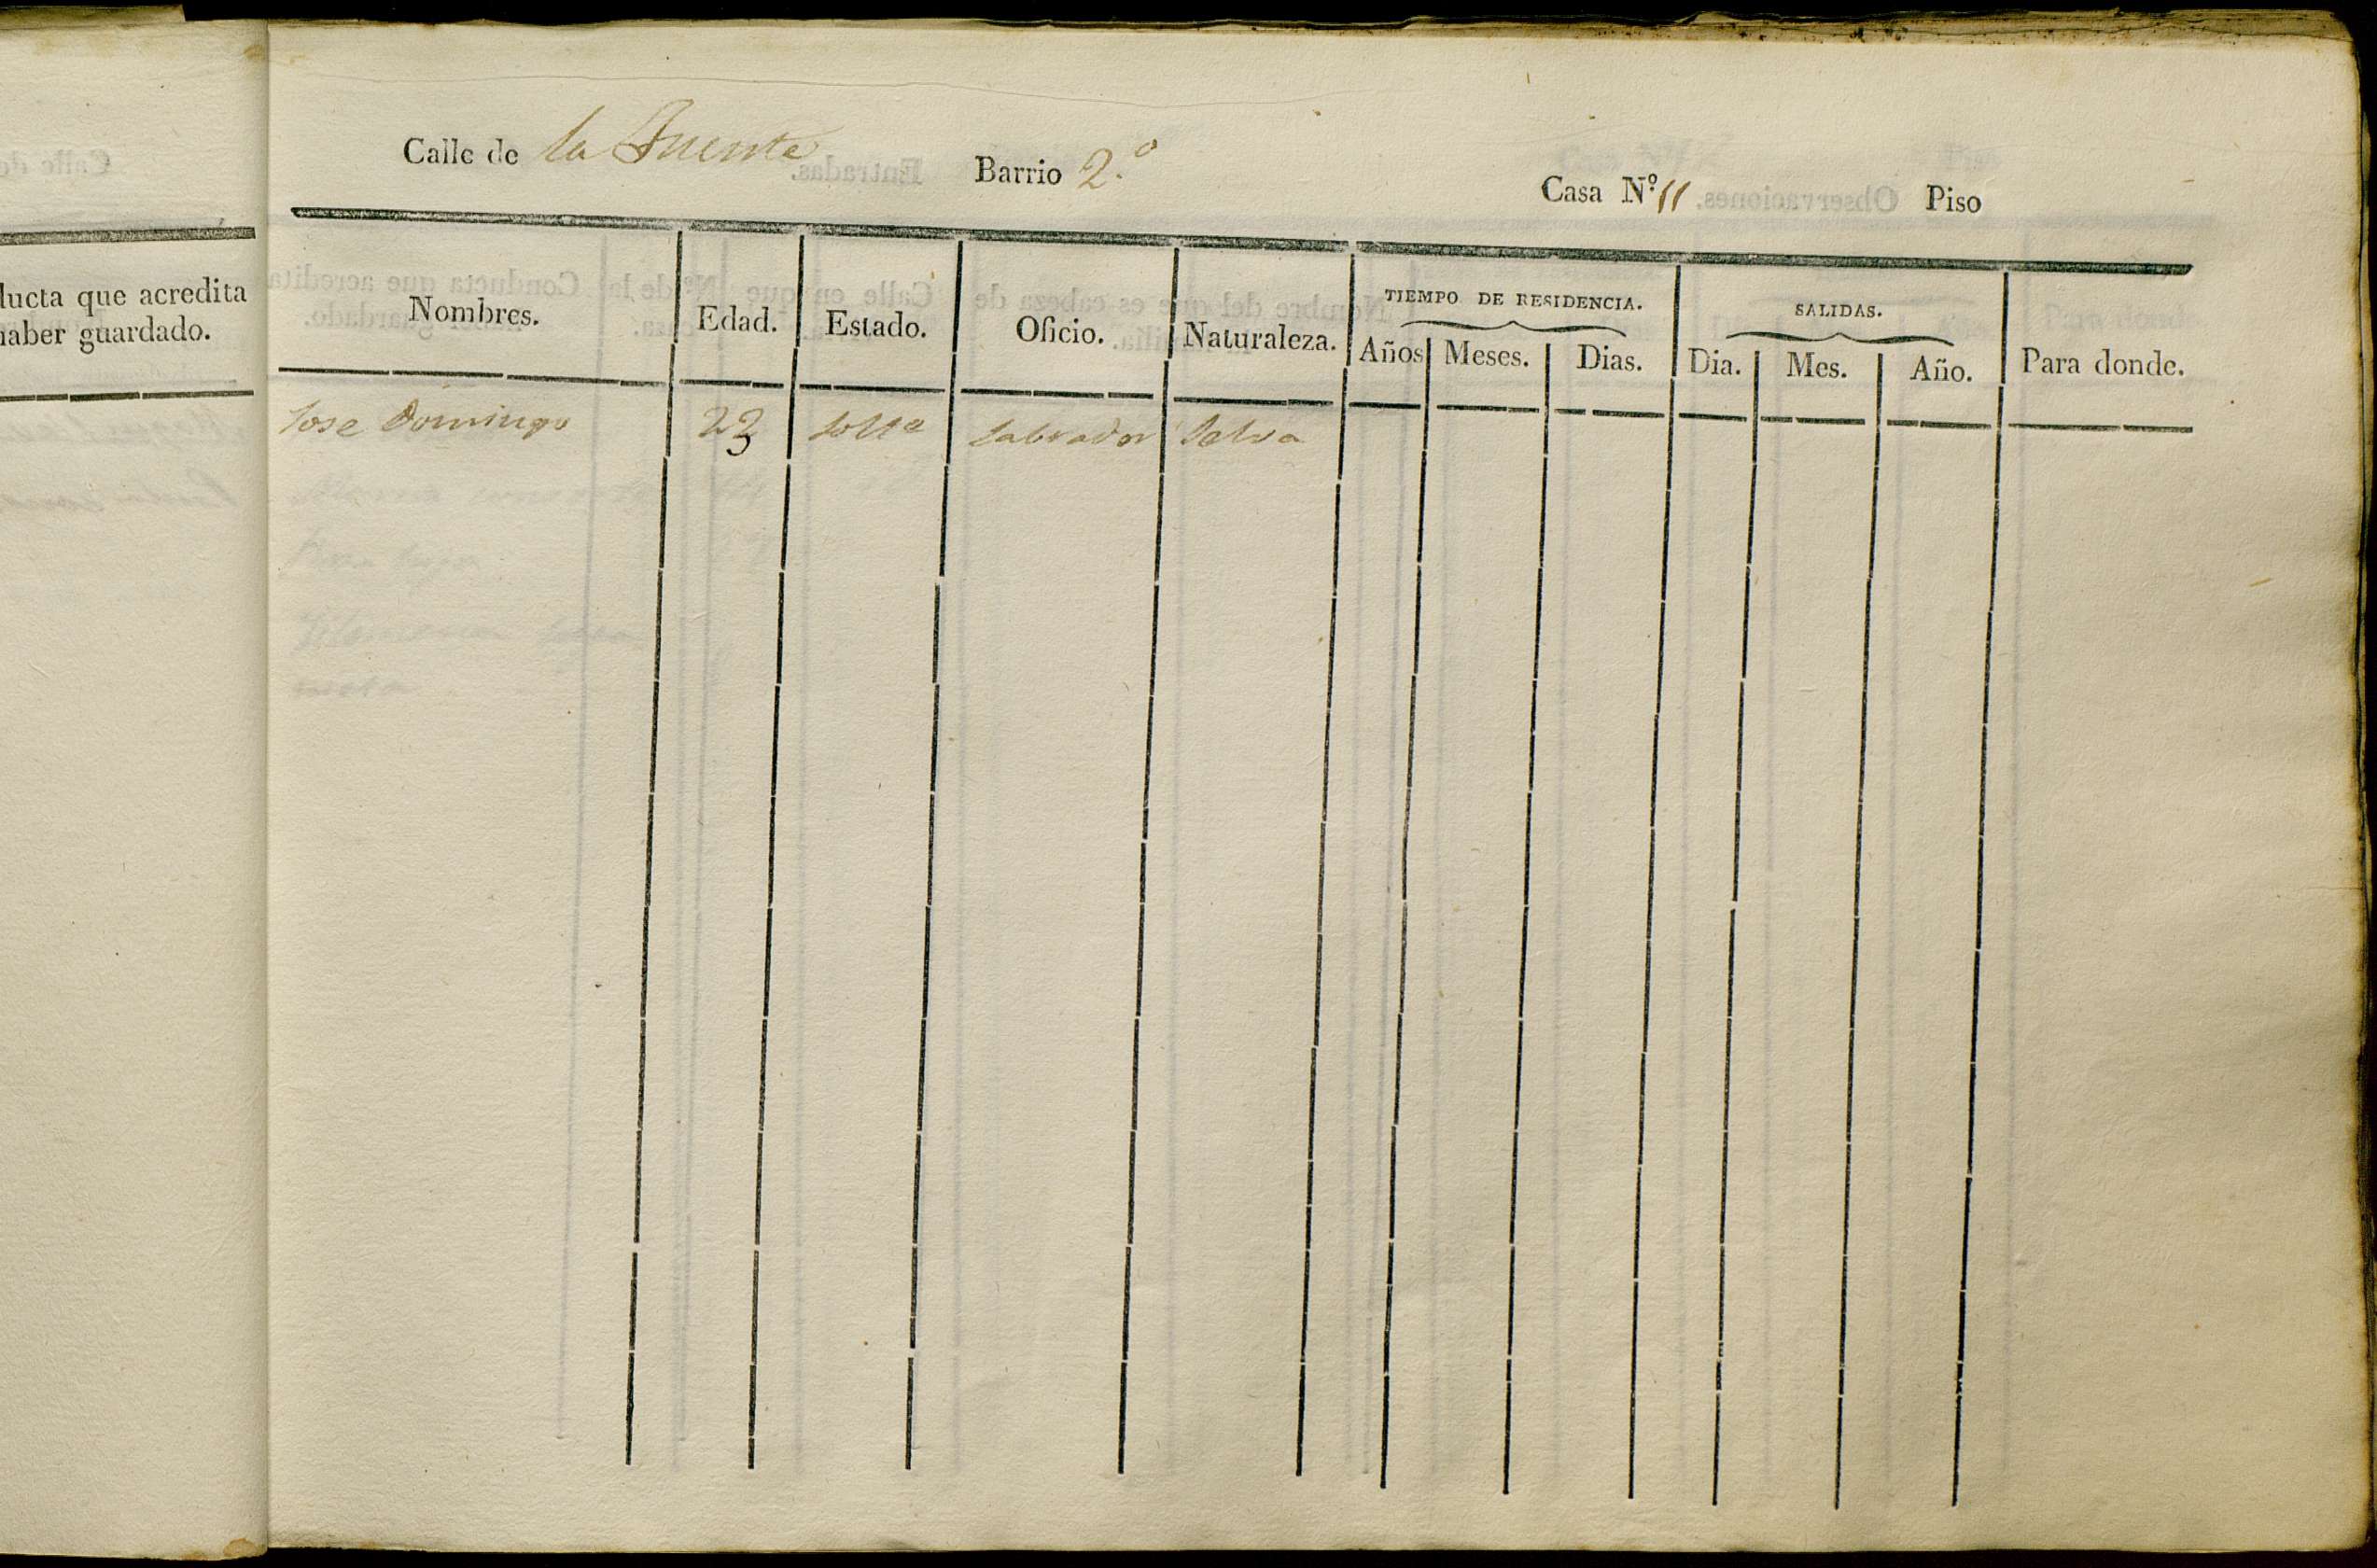 Calle de la Fuente Barrio 2.º Casa Nº 11 Piso
ducta que acredita
haber guardado.
Nombres. Edad. Estado. Oficio. Naturaleza. TIEMPO DE RESIDENCIA. SALIDAS. Para donde.
Años Meses. Dias. Dia. Mes. Año.
Jose Domingo 23 solte labrador Selva